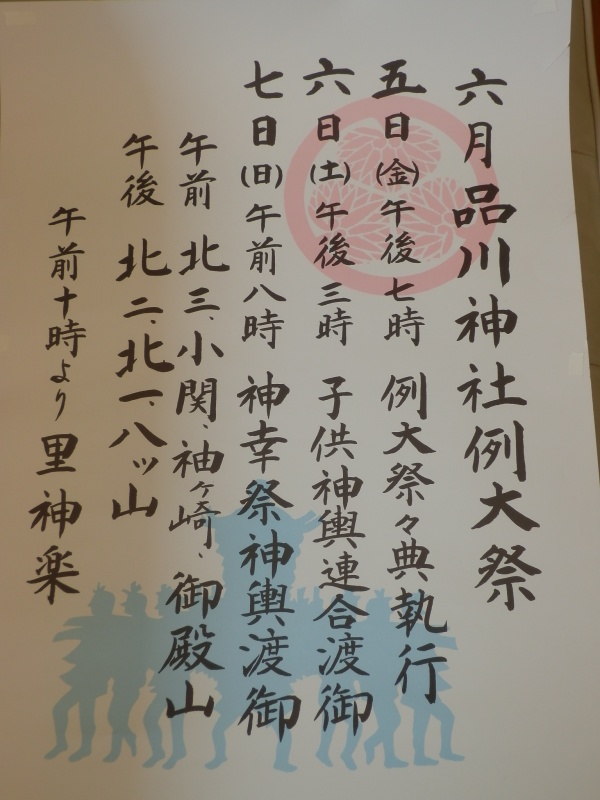 六月品川神社例大祭
五日(金)午後七時 例大祭々典執行
六日(土)午後三時 子供神輿連合渡御
七日(日)午前八時 神幸祭神輿渡御
午前 北三、小関、袖ヶ崎、御殿山
午後 北二、北一、八ッ山
午前十時より 里神楽